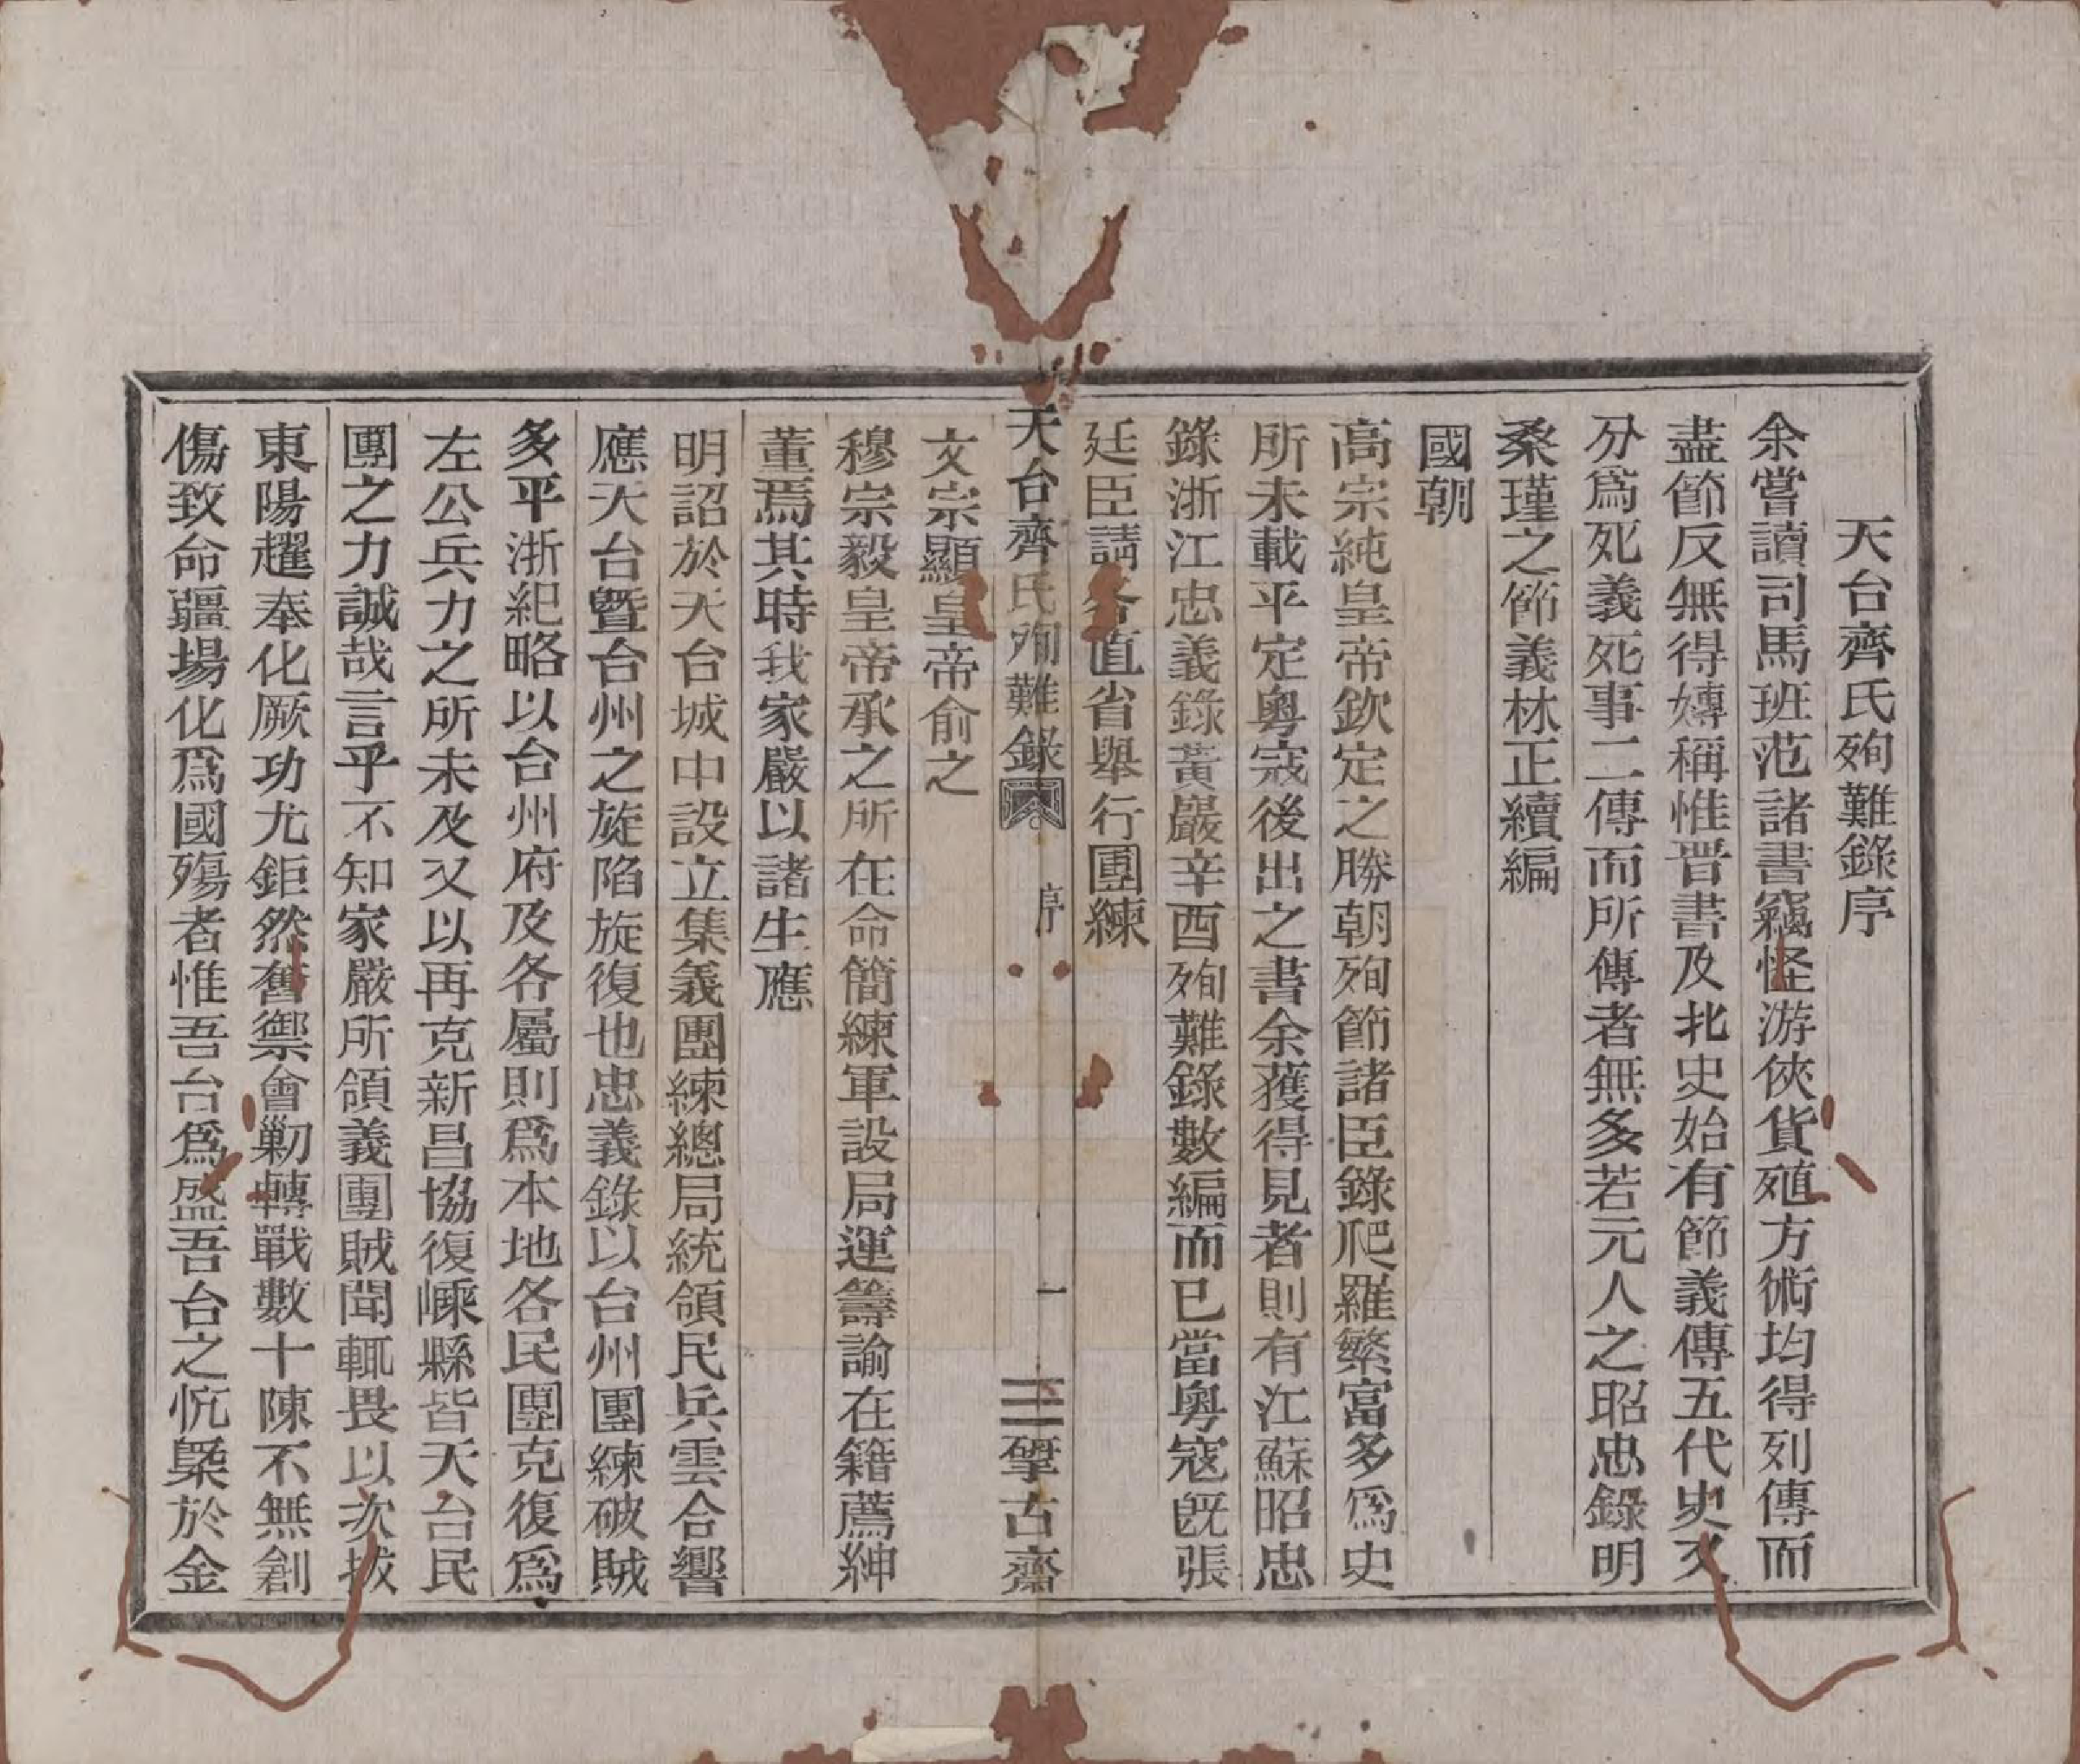 天台齊氏殉難錄序
余嘗讀司馬班范諸書竊怪游俠貨殖方術均得列傳而
盡節反無得專稱惟晋書及北史始有節義傳五代史又
分爲死義死事二傳而所傳者無多若元人之昭忠錄明
桑瑾之節義林正續編
國朝
高宗純皇帝欽定之勝朝殉節諸臣錄爬羅繁富多爲史
所未載平定粵寇後出之書余獲得見者則有江蘇昭忠
錄浙江忠義錄黃巖辛酉殉難錄數編而已當粵寇旣張
廷臣請各直省舉行團練
天台齊氏殉難錄 序 一 揅古齋
文宗顯皇帝俞之
穆宗毅皇帝承之所在命簡練軍設局運籌諭在籍薦紳
董焉其時我家嚴以諸生應
明詔於天台城中設立集義團練總局統領民兵雲合響
應天台曁台州之旋陷旋復也忠義錄以台州團練破賊
多平浙紀略以台州府及各屬則爲本地各民團克復爲
左公兵力之所未及又以再克新昌協復嵊縣皆天台民
團之力誠哉言乎不知家嚴所領義團賊聞輒畏以次拔
東陽趯奉化厥功尤鉅然舊禦會剿轉戰數十陳不無創
傷致命疆場化爲國殤者惟吾台爲盛吾台之忼槩於金